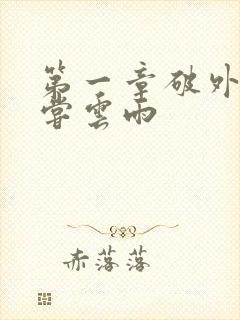 第一章破外
嘗雲雨
赤落落